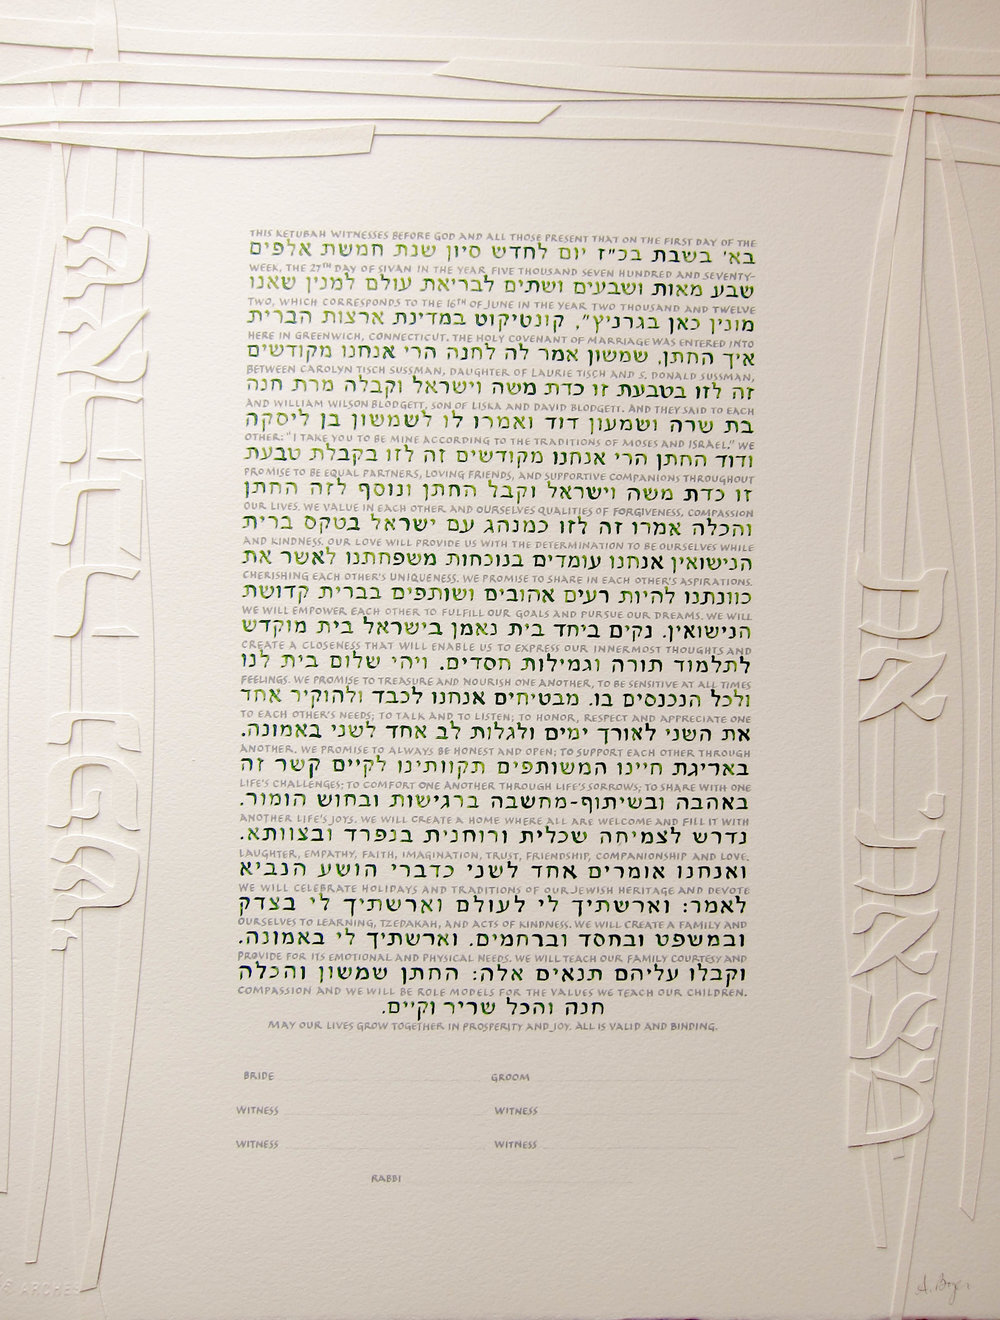 מצאתי את
שאהבה נפשי
THIS KETUBAH WITNESSES BEFORE GOD AND ALL THOSE PRESENT THAT ON THE FIRST DAY OF THE
בא׳ בשבת בכ״ז יום לחדש סיון שנת חמשת אלפים
WEEK, THE 27TH DAY OF SIVAN IN THE YEAR FIVE THOUSAND SEVEN HUNDRED AND SEVENTY-
שבע מאות ושבעים ושתים לבריאת עולם למנין שאנו
TWO, WHICH CORRESPONDS TO THE 16TH OF JUNE IN THE YEAR TWO THOUSAND AND TWELVE
מונין כאן בגרניץ״, קונטיקוט במדינת ארצות הברית
HERE IN GREENWICH, CONNECTICUT. THE HOLY COVENANT OF MARRIAGE WAS ENTERED INTO
איך החתן, שמשון אמר לה לחנה הרי אנחנו מקודשים
BETWEEN CAROLYN TISCH SUSSMAN, DAUGHTER OF LAURIE TISCH AND S. DONALD SUSSMAN,
זה לזו בטבעת זו כדת משה וישראל וקבלה מרת חנה
AND WILLIAM WILSON BLODGETT, SON OF LISKA AND DAVID BLODGETT. AND THEY SAID TO EACH
בת שרה ושמעון דוד ואמרו לו לשמשון בן ליסקה
OTHER: "I TAKE YOU TO BE MINE ACCORDING TO THE TRADITIONS OF MOSES AND ISRAEL." WE
ודוד החתן הרי אנחנו מקודשים זה לזו בקבלת טבעת
PROMISE TO BE EQUAL PARTNERS, LOVING FRIENDS, AND SUPPORTIVE COMPANIONS THROUGHOUT
זו כדת משה וישראל וקבל החתן ונוסף לזה החתן
OUR LIVES. WE VALUE IN EACH OTHER AND OURSELVES QUALITIES OF FORGIVENESS, COMPASSION
והכלה אמרו זה לזו כמנהג עם ישראל בטקס ברית
AND KINDNESS. OUR LOVE WILL PROVIDE US WITH THE DETERMINATION TO BE OURSELVES WHILE
הנישואין אנחנו עומדים בנוכחות משפחתנו לאשר את
CHERISHING EACH OTHER'S UNIQUENESS. WE PROMISE TO SHARE IN EACH OTHER'S ASPIRATIONS.
כוונתנו להיות רעים אהובים ושותפים בברית קדושת
WE WILL EMPOWER EACH OTHER TO FULFILL OUR GOALS AND PURSUE OUR DREAMS. WE WILL
הנישואין. נקים ביחד בית נאמן בישראל בית מוקדש
CREATE A CLOSENESS THAT WILL ENABLE US TO EXPRESS OUR INNERMOST THOUGHTS AND
לתלמוד תורה וגמילות חסדים. ויהי שלום בית לנו
FEELINGS. WE PROMISE TO TREASURE AND NOURISH ONE ANOTHER, TO BE SENSITIVE AT ALL TIMES
ולכל הנכנסים בו. מבטיחים אנחנו לכבד ולהוקיר אחד
TO EACH OTHER'S NEEDS; TO TALK AND TO LISTEN; TO HONOR, RESPECT AND APPRECIATE ONE
את השני לאורך ימים ולגלות לב אחד לשני באמונה.
ANOTHER. WE PROMISE TO ALWAYS BE HONEST AND OPEN; TO SUPPORT EACH OTHER THROUGH
באריגת חיינו המשותפים תקוותינו לקיים קשר זה
LIFE'S CHALLENGES; TO COMFORT ONE ANOTHER THROUGH LIFE'S SORROWS; TO SHARE WITH ONE
באהבה ובשיתוף-מחשבה ברגישות ובחוש הומור.
ANOTHER LIFE'S JOYS. WE WILL CREATE A HOME WHERE ALL ARE WELCOME AND FILL IT WITH
נדרש לצמיחה שכלית ורוחנית בנפרד ובצוותא.
LAUGHTER, EMPATHY, FAITH, IMAGINATION, TRUST, FRIENDSHIP, COMPANIONSHIP AND LOVE.
ואנחנו אומרים אחד לשני כדברי הושע הנביא
WE WILL CELEBRATE HOLIDAYS AND TRADITIONS OF OUR JEWISH HERITAGE AND DEVOTE
לאמר: וארשתיך לי לעולם וארשתיך לי בצדק
OURSELVES TO LEARNING, TZEDAKAH, AND ACTS OF KINDNESS. WE WILL CREATE A FAMILY AND
ובמשפט ובחסד וברחמים. וארשתיך לי באמונה.
PROVIDE FOR ITS EMOTIONAL AND PHYSICAL NEEDS. WE WILL TEACH OUR FAMILY COURTESY AND
וקבלו עליהם תנאים אלה: החתן שמשון והכלה
COMPASSION AND WE WILL BE ROLE MODELS FOR THE VALUES WE TEACH OUR CHILDREN.
חנה והכל שריר וקיים.
MAY OUR LIVES GROW TOGETHER IN PROSPERITY AND JOY. ALL IS VALID AND BINDING.
BRIDE GROOM
WITNESS WITNESS
WITNESS WITNESS
RABBI
ARCHES
A. Boyer